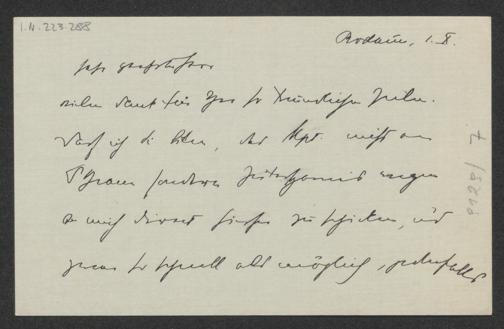 I.N. 223.288
Rodaun, 1. X.
sehr geehrter Herr
vielen Dank für Ihre so freundlichen Zeilen.
Darf ich Sie bitten, das Mpt. nicht an
sondern Zeitersparnis wegen
an mich direct hieher zu schicken, und
zwar so schnell als möglich, jedenfalls